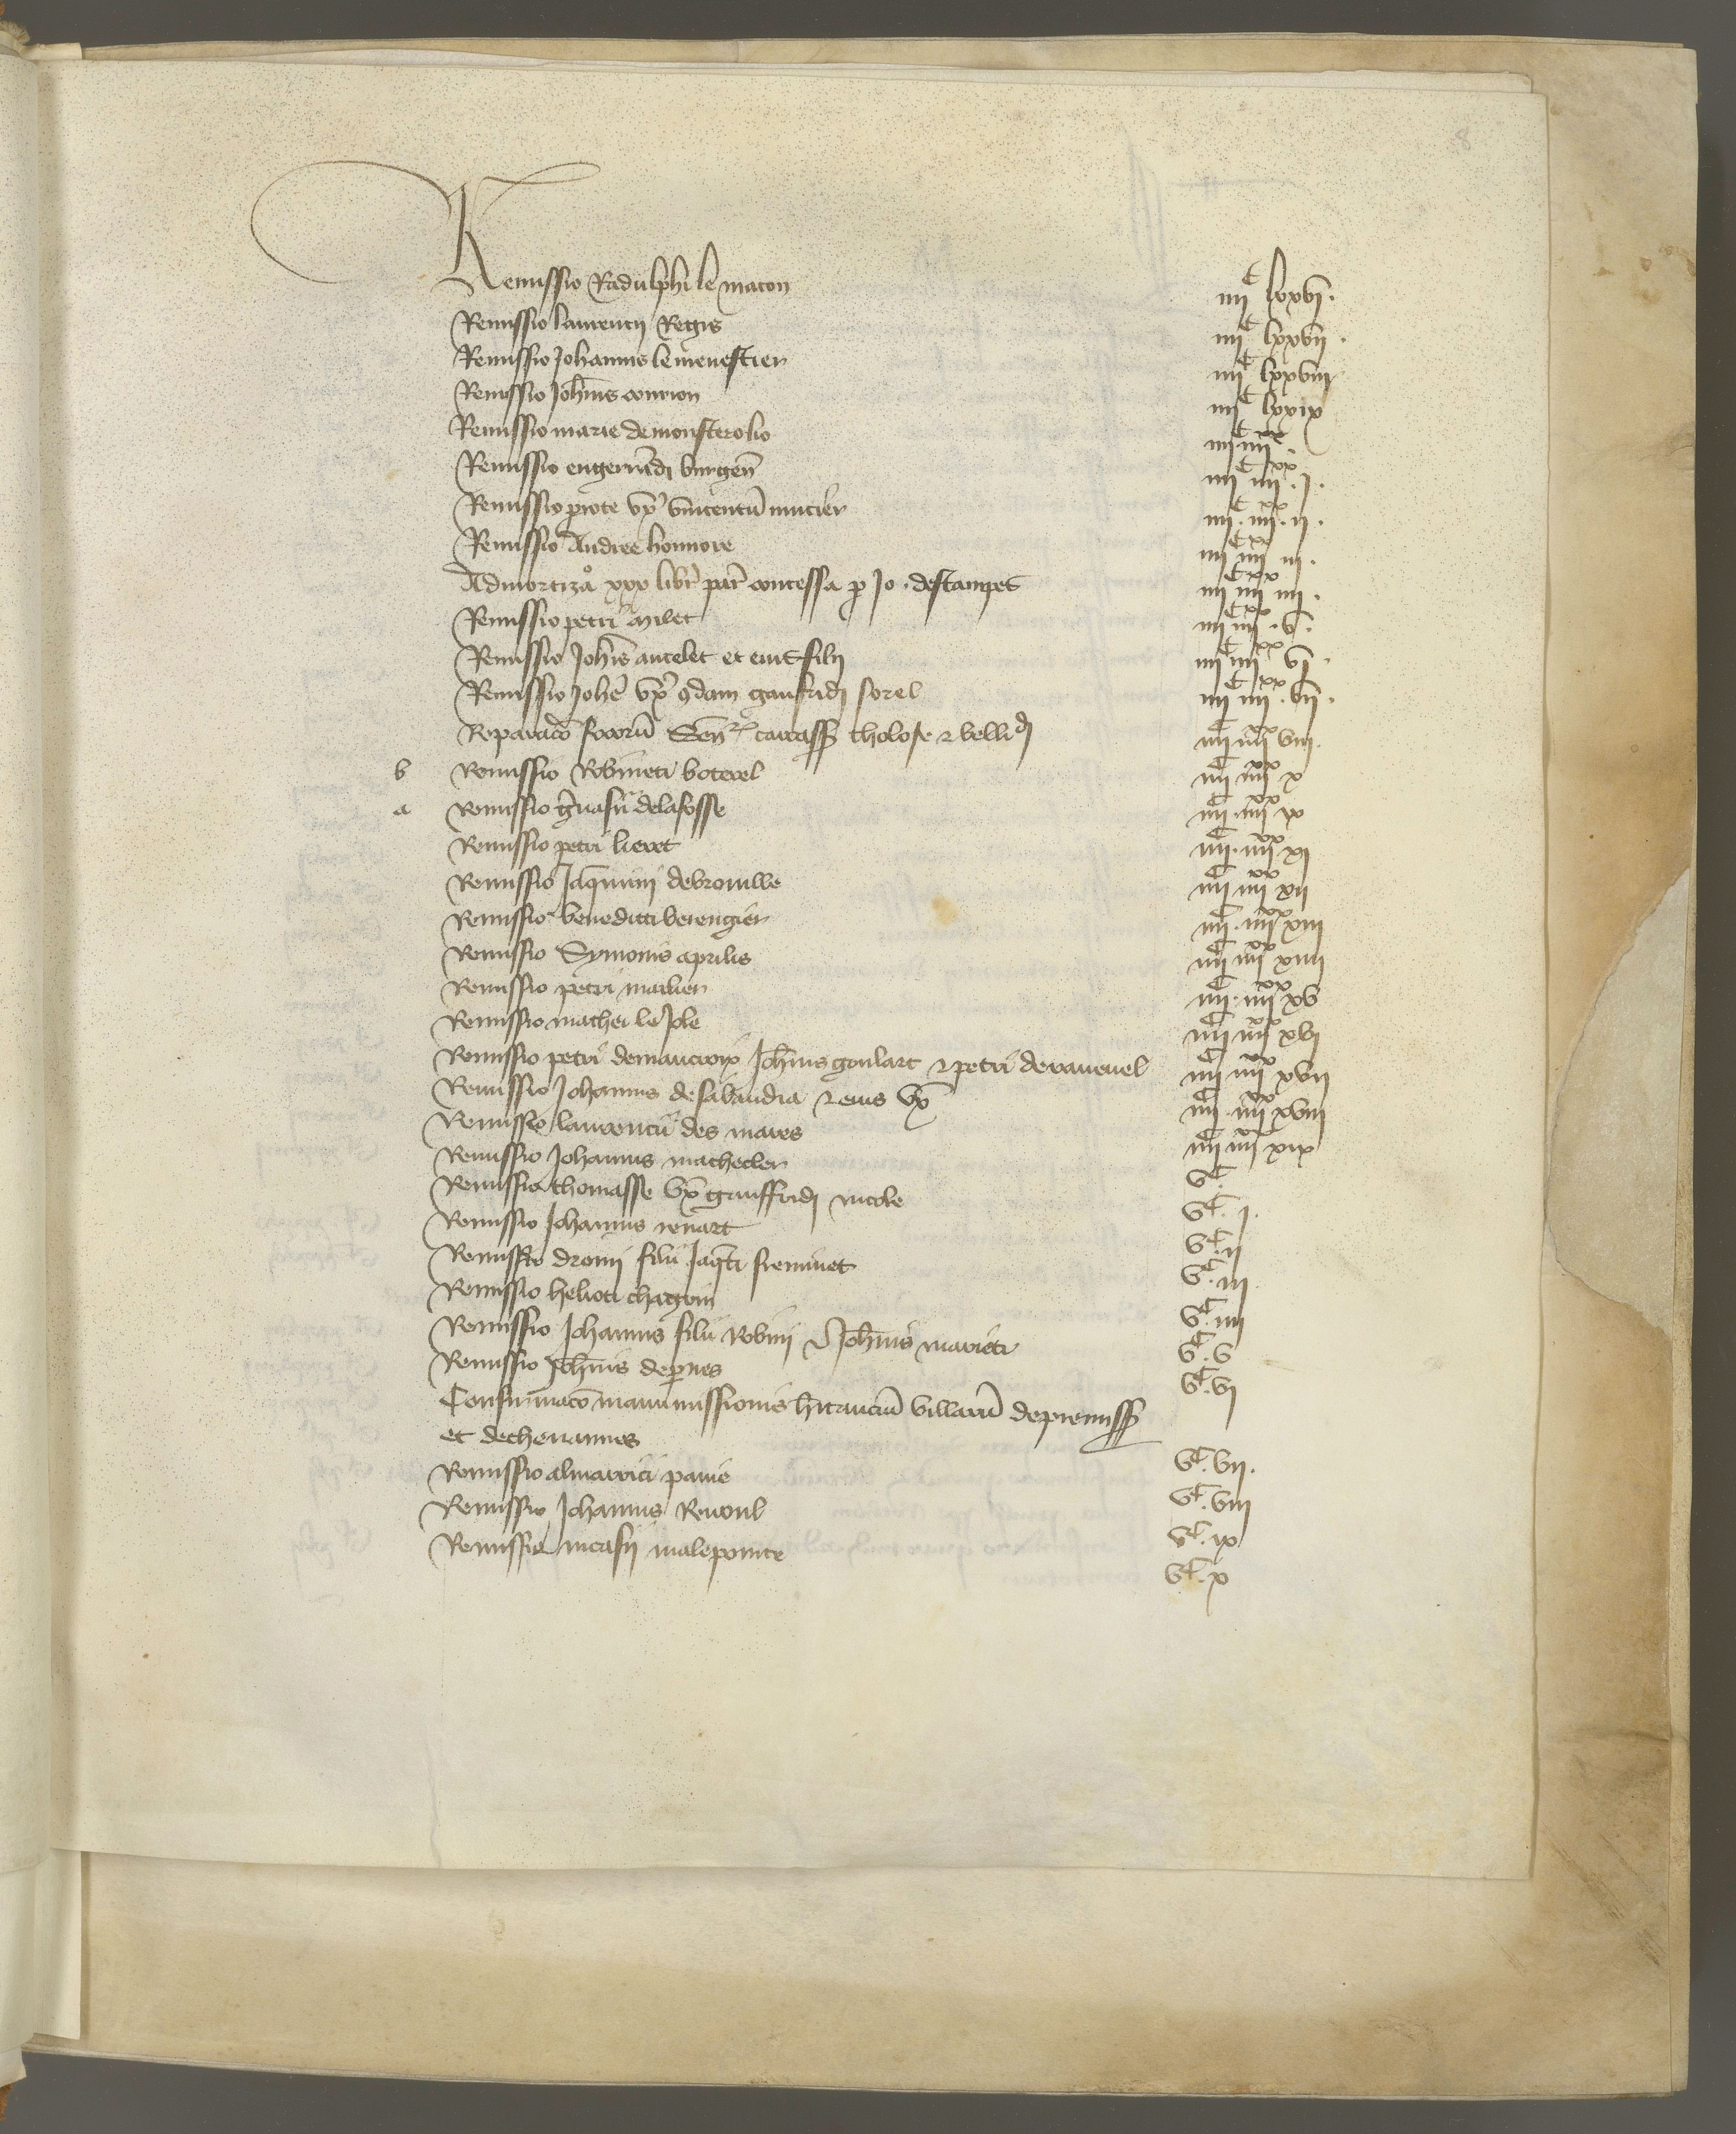 8
Remissio Radulphi le macon iiiiC lxxvi.
Remissio laurencij Regis iiiiC lxxvii.
Remissio Johannis le menestier iiiiC lxxviii
Remissio Joh̄nis couvion iiiiC lxxix
Remissio marie de monsterolio iiiiC iiiixx.
Remissio engerrādi burgeñ iiiiC iiiixx.j.
Remissio perote vx̄ vincentii iiiiC.iiiixx.ii.
Remissio Andree honnore iiiiC iiiixx iii.
Admortizao xxx libr̄ par̄ concessa p Jo. destampes iiiiC iiiixx iiii.
Remissio petri milet iiiiC iiiixx.v.
Remissio Joh̄is ancelet et eius filij iiiiC iiiixx vj.
Remissio Johē vx̄ qdam gaufridj sorel iiiiC iiiixx.vii.
Reparacō focorū Seń carcass̄ tholose & bellicdj iiiiC iiiixx viii.
b Remissio Robineti boterel iiiiC iiiixx x
a Remissio ḡvasii delafosse iiiiC.iiiixx ix
Remissio petri lieret iiiiC.iiiixx xj
Remissio Jaq̄mini iiiiC iiiixx xii
Remissio benedicti berengier iiiiC.iiiixx xiii
Remissio Symonis aprilis iiiiC iiiixx xiiii
Remissio petri iiiiC.iiiixx xv
Remissio mathei le Jole iiiiC iiiixx xvi
Remissio petri demaucroix Joh̄nis goulart & petri de ravenel iiiiC iiiixx xvii
Remissio Johannis de sabaudia & eius vx̄ iiiiC.iiiixx xviii
Remissio laurencii des mares iiiiC iiiixx xix
Remissio Johannis macheclier vC.
Remissio thomasse vx̄ gauffridj nicole vC.j.
Remissio Johannis renart vC.ii
Remissio dronij filii Jaq̄ti vC.iii.
Remissio helioti vC.iiii
Remissio Johannis filii Robini & Joh̄nis marieti vC.v
Remissio Joh̄nis vC.vj
Confirmacō manumissionis h̄itanciū villarū depremiss̄
et dechenannes vC.vii.
Remissio almarrici pavie vC.viii
Remissio Johannis Revoul vC.ix
Remissio nicasij malepointe vC.x